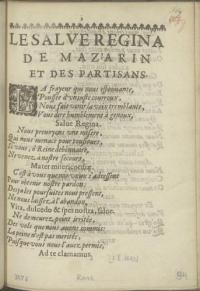 LE SALVE REGINA
DE MAZARIN
ET DES PARTISANS.
LA frayeur qui nous espouuante,
Pousser d'vn iuste courroux,
Nous fait venir la voix tremblante,
Vous dire humblement à genoux,
Salue Regina.
Nous preuoyons vne misere,
Qui nous menace pour tousiours,
Si vous, ô Reine debonnaire,
Ne venez, à nostre secours,
Mater misericordiæ.
C'est à vous que nos vœux s'adressent
Pour obtenir nostre pardon:
Des jà les poursuittes nous pressent,
Ne nous laissez, à l'abandon,
Vita, dulcedo & spes nostra, salue.
Ne demeurez, point irritée,
Des vols que nous auons commis:
La peine n'est pas meritée,
Puisque vous nous l'auez permis,
Ad te clamamus,